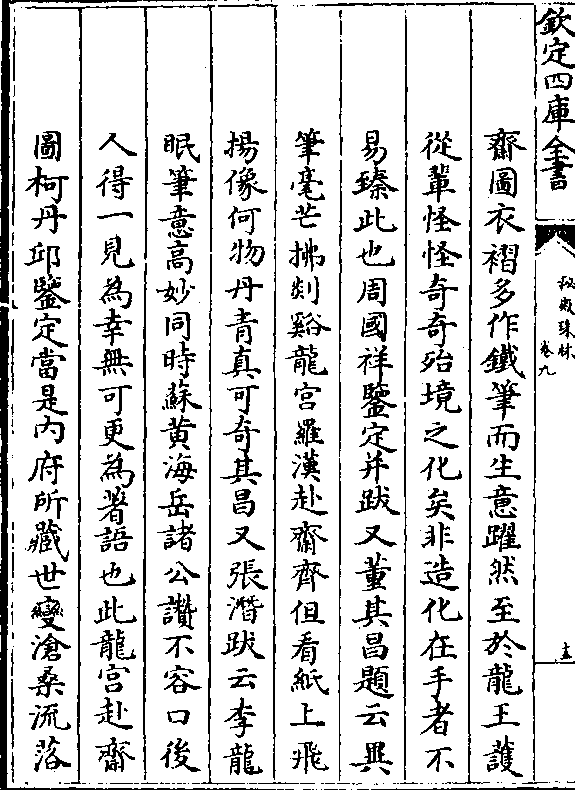 欽定四庫全書
秘殿珠林
卷九
齋圖衣褶多作鐵筆而生意躍然至於龍王護
從輩怪怪奇奇殆境之化矣非造化在手者不
易臻此也周國祥鑒定并跋又董其昌題云興
筆毫芒拂剡谿龍宮羅漢赴齋齊但看紙上飛
揚像何物丹青真可奇其昌又張濳跋云李龍
眠筆意高妙同時蘇黄海岳諸公讚不容口後
人得一見為幸無可更為著語也此龍宮赴齋
圖柯丹邱鑒定當是内府所藏世變滄桑流落